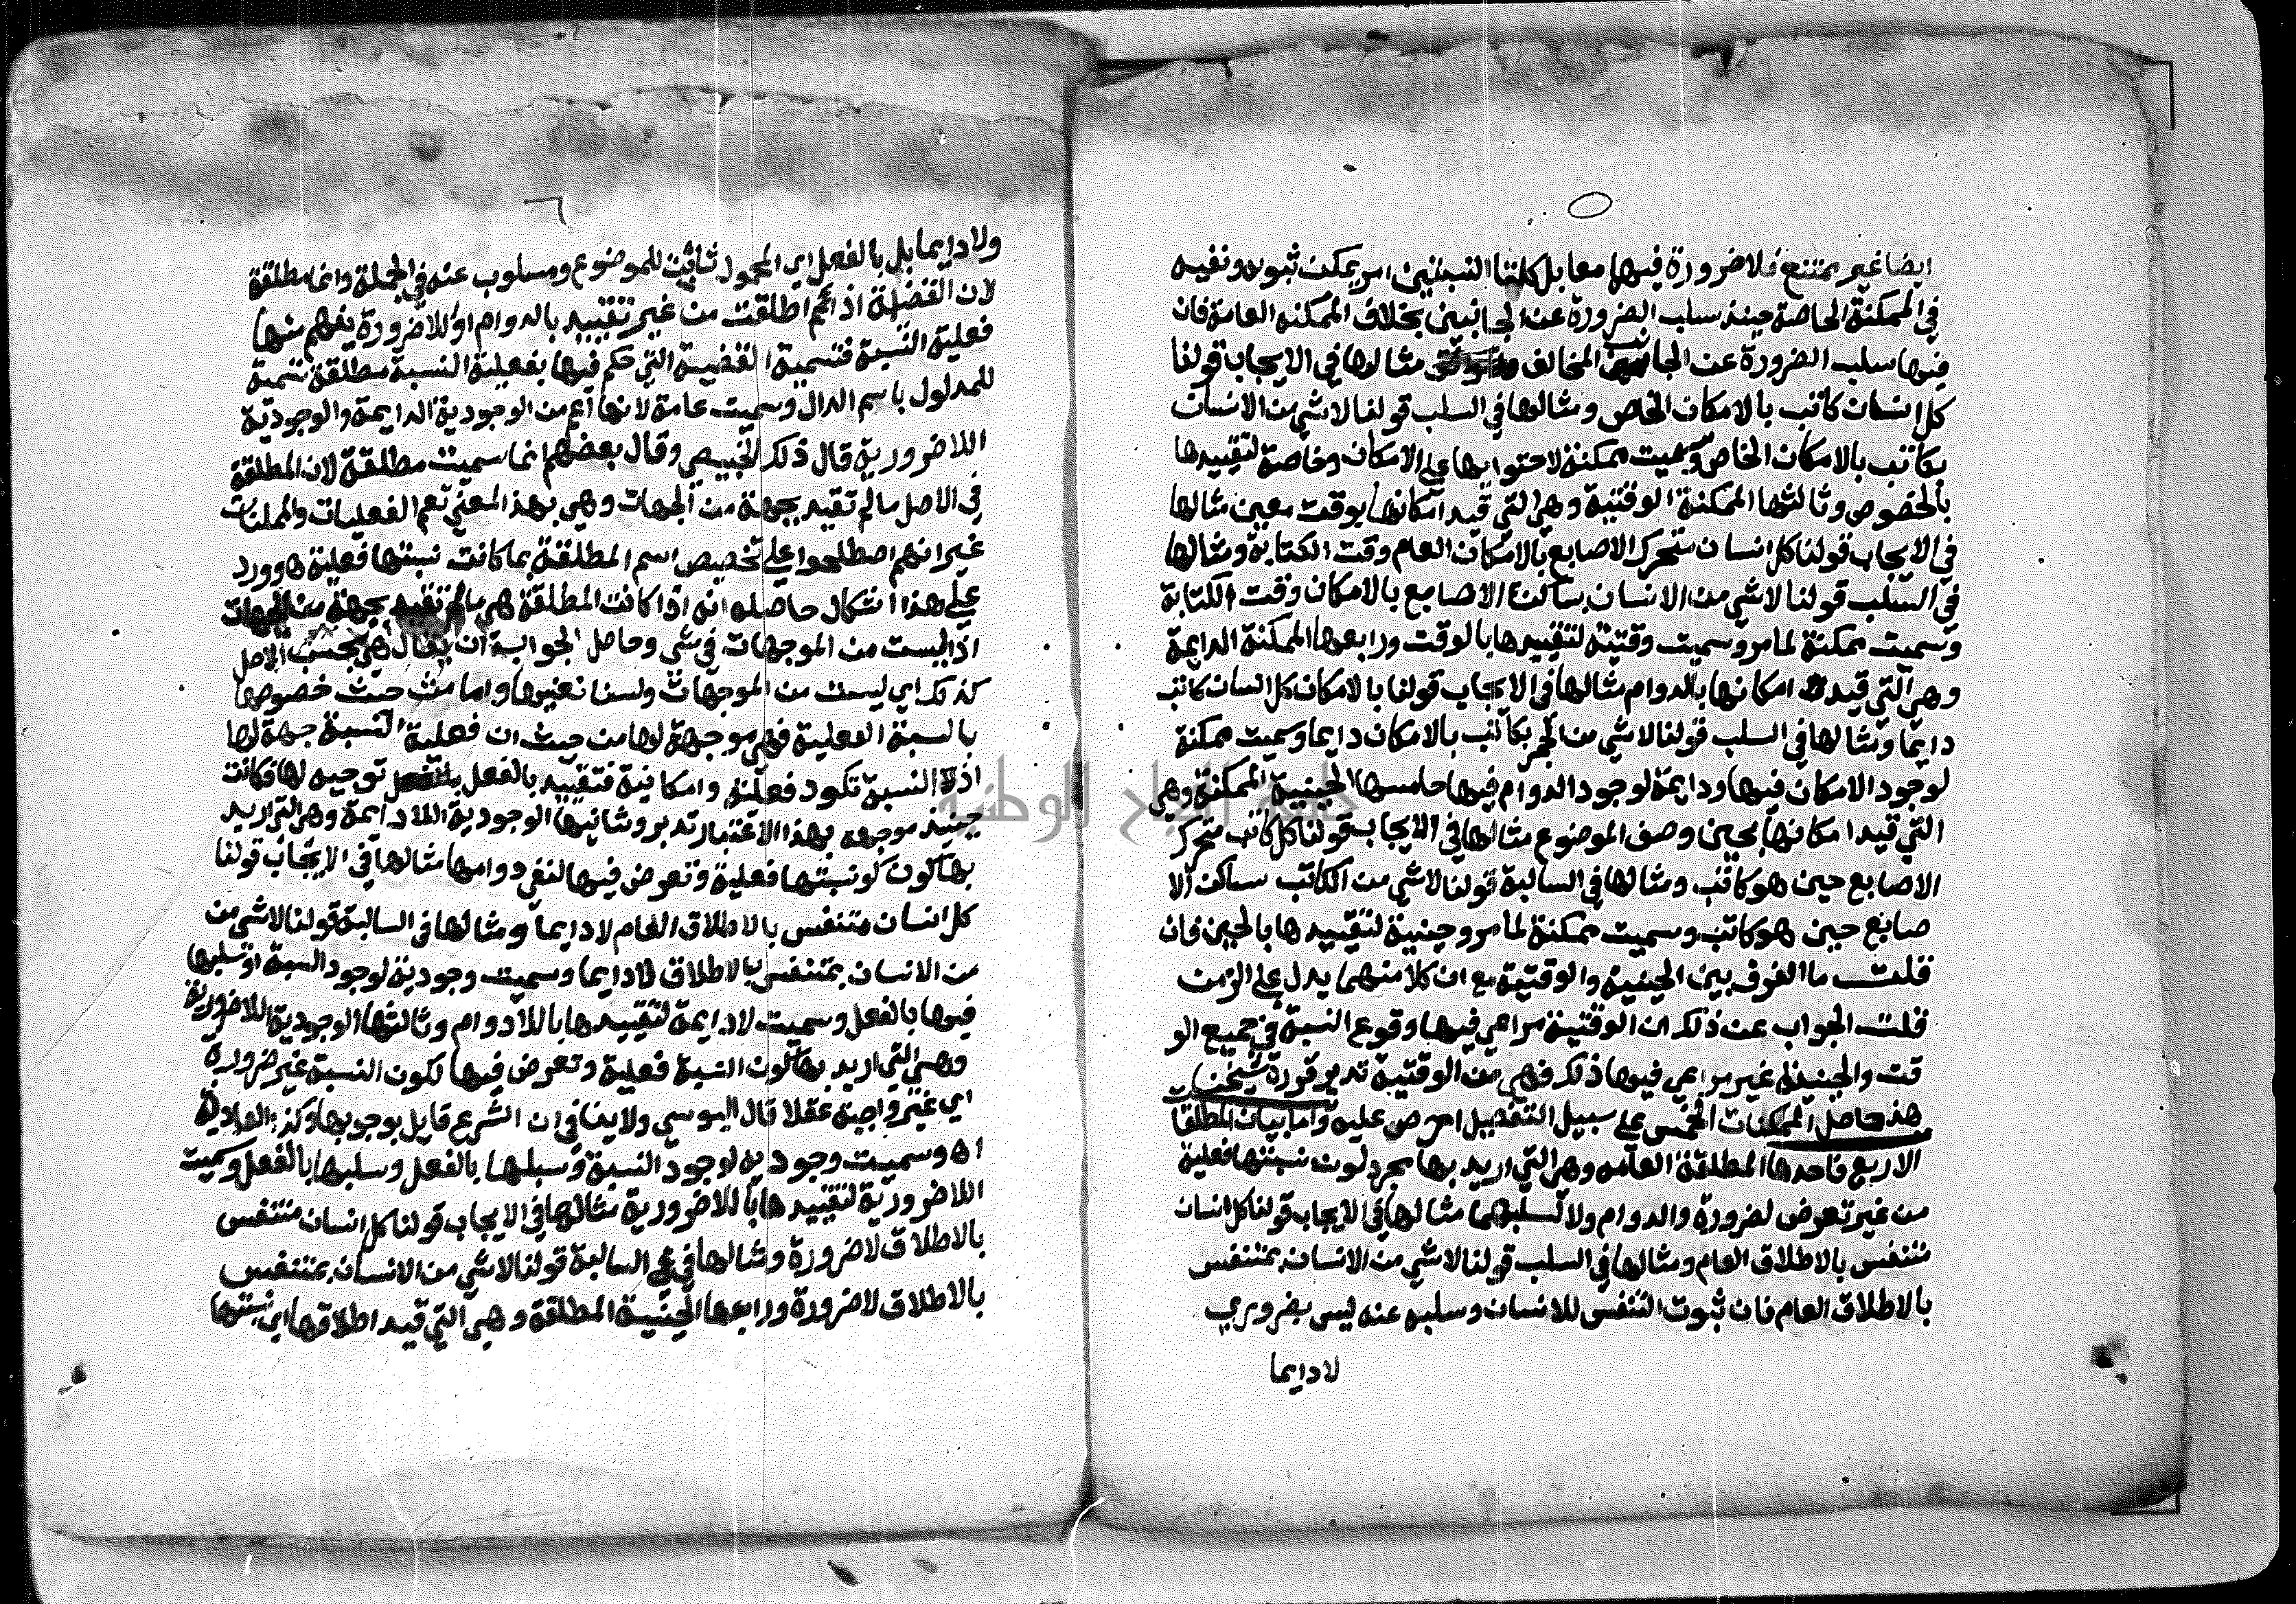 ايضا غير ممتنع فلا ضرورة فيها معا بل كلتا النسبتين امر يمكن ثبوته ونفيه
في الممكنة الخاصة حينئذ سلب الضرورة عن الجانبين بخلاف الممكنه العامة فان
فيها سلب الضرورة عن الجانب المخالف مثالها في الايجاب قولنا
كل انسان كاتب بالامكان الخاص ومثالها في السلب قولنا لا شي من الانسان
بكاتب بالامكان الخاص وسميت ممكنة لاحتوايها على الامكان وخاصة لتقييدها
بالخصوص وثالثها الممكنة الوقتية وهي التي قيد امكانها بوقت معين مثالها
في الايجاب قولنا كل انسان متحرك الاصابع بالامكان العام وقت الكتابة ومثالها
في السلب قولنا لا شي من الانسان بساكن الاصابع بالامكان وقت الكتابة
وسميت ممكنة لما مر وسميت وقتية لتقييدها بالوقت ورابعها الممكنة الدايمة
وهي التي قيد امكانها بالدوام مثالها في الايجاب قولنا بالامكان كل انسان كاتب
دايما ومثالها في السلب قولنا لا شي من الحجر بكاتب بالامكان دايما وسميت ممكنة
لوجود الامكان فيها ودايمة لوجود الدوام فيها خامسها الحينية الممكنة وهي
التي قيد امكانها بحين وصف الموضوع مثالها في الايجاب قولنا كل كاتب متحرك
الاصابع حين هو كاتب ومثالها في السالبة قولنا لا شي من الكاتب ساكن الا
صابع حين هو كاتب وسميت ممكنة لما مر وحينية لتقييدها بالحين فان
قلت ما الفرق بين الحينية والوقتية مع ان كلا منهما يدل على الزمن
قلت الجواب عن ذلك ان الوقتية مراعي فيها وقوع النسبة في جميع الو
قت والحينية غير مراعي فيها ذلك فهي من الوقتية تدبر قرره شيخنا
هذ حاصل الممكنات الخمس على سبيل التفصيل احرص عليه واما بيان المطلقا
الاربع فاحدها المطلقة العامه وهي التي اريد بها مجرد كون نسبتها فعلية
من غير تعرض لضرورة والدوام ولا لسلبهما مثالها في الايجاب قولنا كل انسان
متنفس بالاطلاق العام ومثالها في السلب قولنا لا شي من الانسان بمتنفس
بالاطلاق العام فان ثبوت التنفس للانسان وسلبه عنه ليس بضروري
لادايما
ولادايما بل بالفعل اي المحمول ثابت للموضوع ومسلوب عنه في الجملة وانما مطلقة
لان القضية اذا اطلقت من غير تقييد بالدوام او اللاضرورة يفهم منها
فعلية النسبة فتسمية القضية التي حكم فيها بفعلية النسبة مطلقة تسمية
للمدلول باسم الدال وسميت عامة لانها اعم من الوجودية الدايمة والوجودية
اللاضرورية قال ذلك الخبيصي وقال بعضهم انما سميت مطلقة لان المطلقة
في الاصل ما لم تقيد بجهة من الجهات وهي بهذ المعني تعم الفعليات والممكنات
غير انهم اصطلحوا على تخصيص اسم المطلقة بما كانت نسبتها فعلية اه وورد
على هذا اشكال حاصله انه اذا كانت المطلقة هي ما لم تقيد بجهة من الجهات
اذا ليست من الموجهات في شي وحاصل الجواب ان يقال هي بحسب الاصل
كذلك اي ليست من الموجهات ولسنا نعنيها واما من حيث خصوصها
بالنسبة الفعلية فهي موجهة لها من حيث ان فعلية النسبة جهة لها
اذ النسبة تكون فعلية وامكانية فتقييد بالفعل توجيه لها فكانت
حينئذ موجهه بهذا الاعتبار تدبر وثانيها الوجودية اللادايمة وهي التي اريد
بها كون نسبتها فعلية وتعرض فيها لنفي دوامها مثالها في الايجاب قولنا
كل انسان متنفس بالاطلاق العام لادايما ومثالها في السالبة قولنا لا شي من
من الانسان بمتنفس بالاطلاق لادايما وسميت وجودية لوجود النسبة او سلبها
فيها بالفعل وسميت لادايمة لتقييدها باللادوام وثالثها الوجودية اللاضرورية
وهي التي اريد بها كون النسبة فعلية وتعرض فيها لكون النسبة غير ضرورة
اي غير واجبة عقلا قال اليوسي ولا ينافي ان الشرع قايل بوجوبها وكذا العادية
اه وسميت وجوديه لوجود النسبة وسلبها بالفعل وسلبها بالفعل وسميت
اللاضرورية لتقييدها باللاضرورية مثالها في الايجاب قولنا كل انسان متنفس
بالاطلاق لاضرورة ومثالها في السالبة قولنا لا شي من الانسان بمتنفس
بالاطلاق لاضرورة ورابعها الحينية المطلقة وهي التي قيد اطلاقها اي نسبتها
جامعة النجاح الوطنية